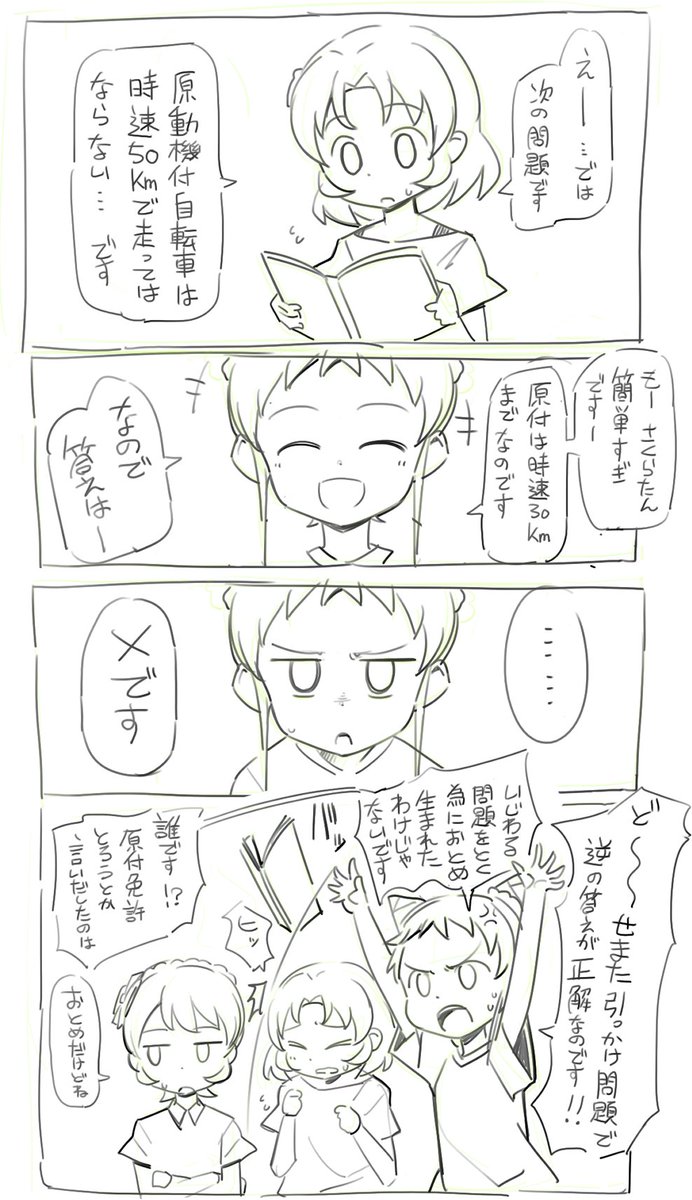 えー…では
次の問題です
原動機付自転車は
時速50Kmで走っては
ならない… です
もー さくらたん
簡単すぎ
ですー
原付は時速30Km
までなのです
なので
答えはー
……
×です
ど〜〜せまた引っかけ問題で
逆の答えが正解なのです!!
いじわる
問題をとく
為におとめ
生まれた
わけじゃ
ないです
ヒッ
誰です!?
原付免許
とろうとか
言いだしたのは
おとめだけどね